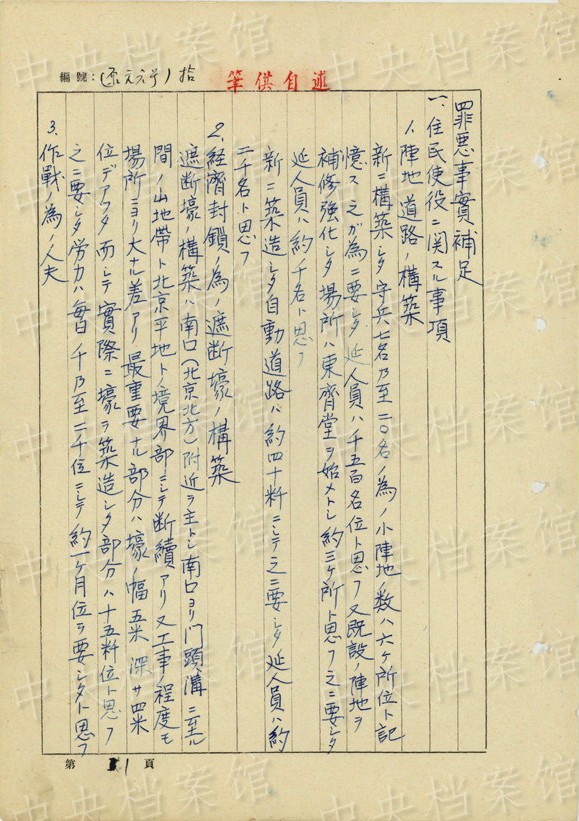 編號：
筆供自述
罪惡事實補足
一、住民使役ニ関スル事項
1、陣地道路ノ構築
新ニ構築シタ守兵七名乃至二〇名ノ為ノ小陣地ノ数ハ六ケ所位ト記
憶ス之ガ為ニ要シタ延人員ハ千五百名位ト思フ又既設ノ陣地ヲ
補修強化シタ場所ハ東齊堂ヲ始メトシ約三ケ所ト思フ之ニ要シタ
延人員ハ約千名ト思フ
新ニ築造シタ自動道路ハ約四十粁ニシテ之ニ要シタ延人員ハ約
二千名ト思フ
2、経済封鎖ノ為ノ遮断壕ノ構築
遮断壕ノ構築ハ南口（北京北方）附近ヲ主トシ南口ヨリ門頭溝ニ至ル
間ノ山地帯ト北京平地トノ境界部ニシテ断續アリ又工事ノ程度モ
場所ニヨリ大ナル差アリ最重要ナル部分ハ壕ノ幅五米深サ四米
位デアツタ而シテ實際ニ壕ヲ築造シタ部分ハ十五粁位ト思フ
之ニ要シタ労力ハ毎日千乃至二千位ニシテ約一ケ月位ヲ要シタト思フ
3、作戰ノ為ノ人夫
第 1 頁
中央档案馆